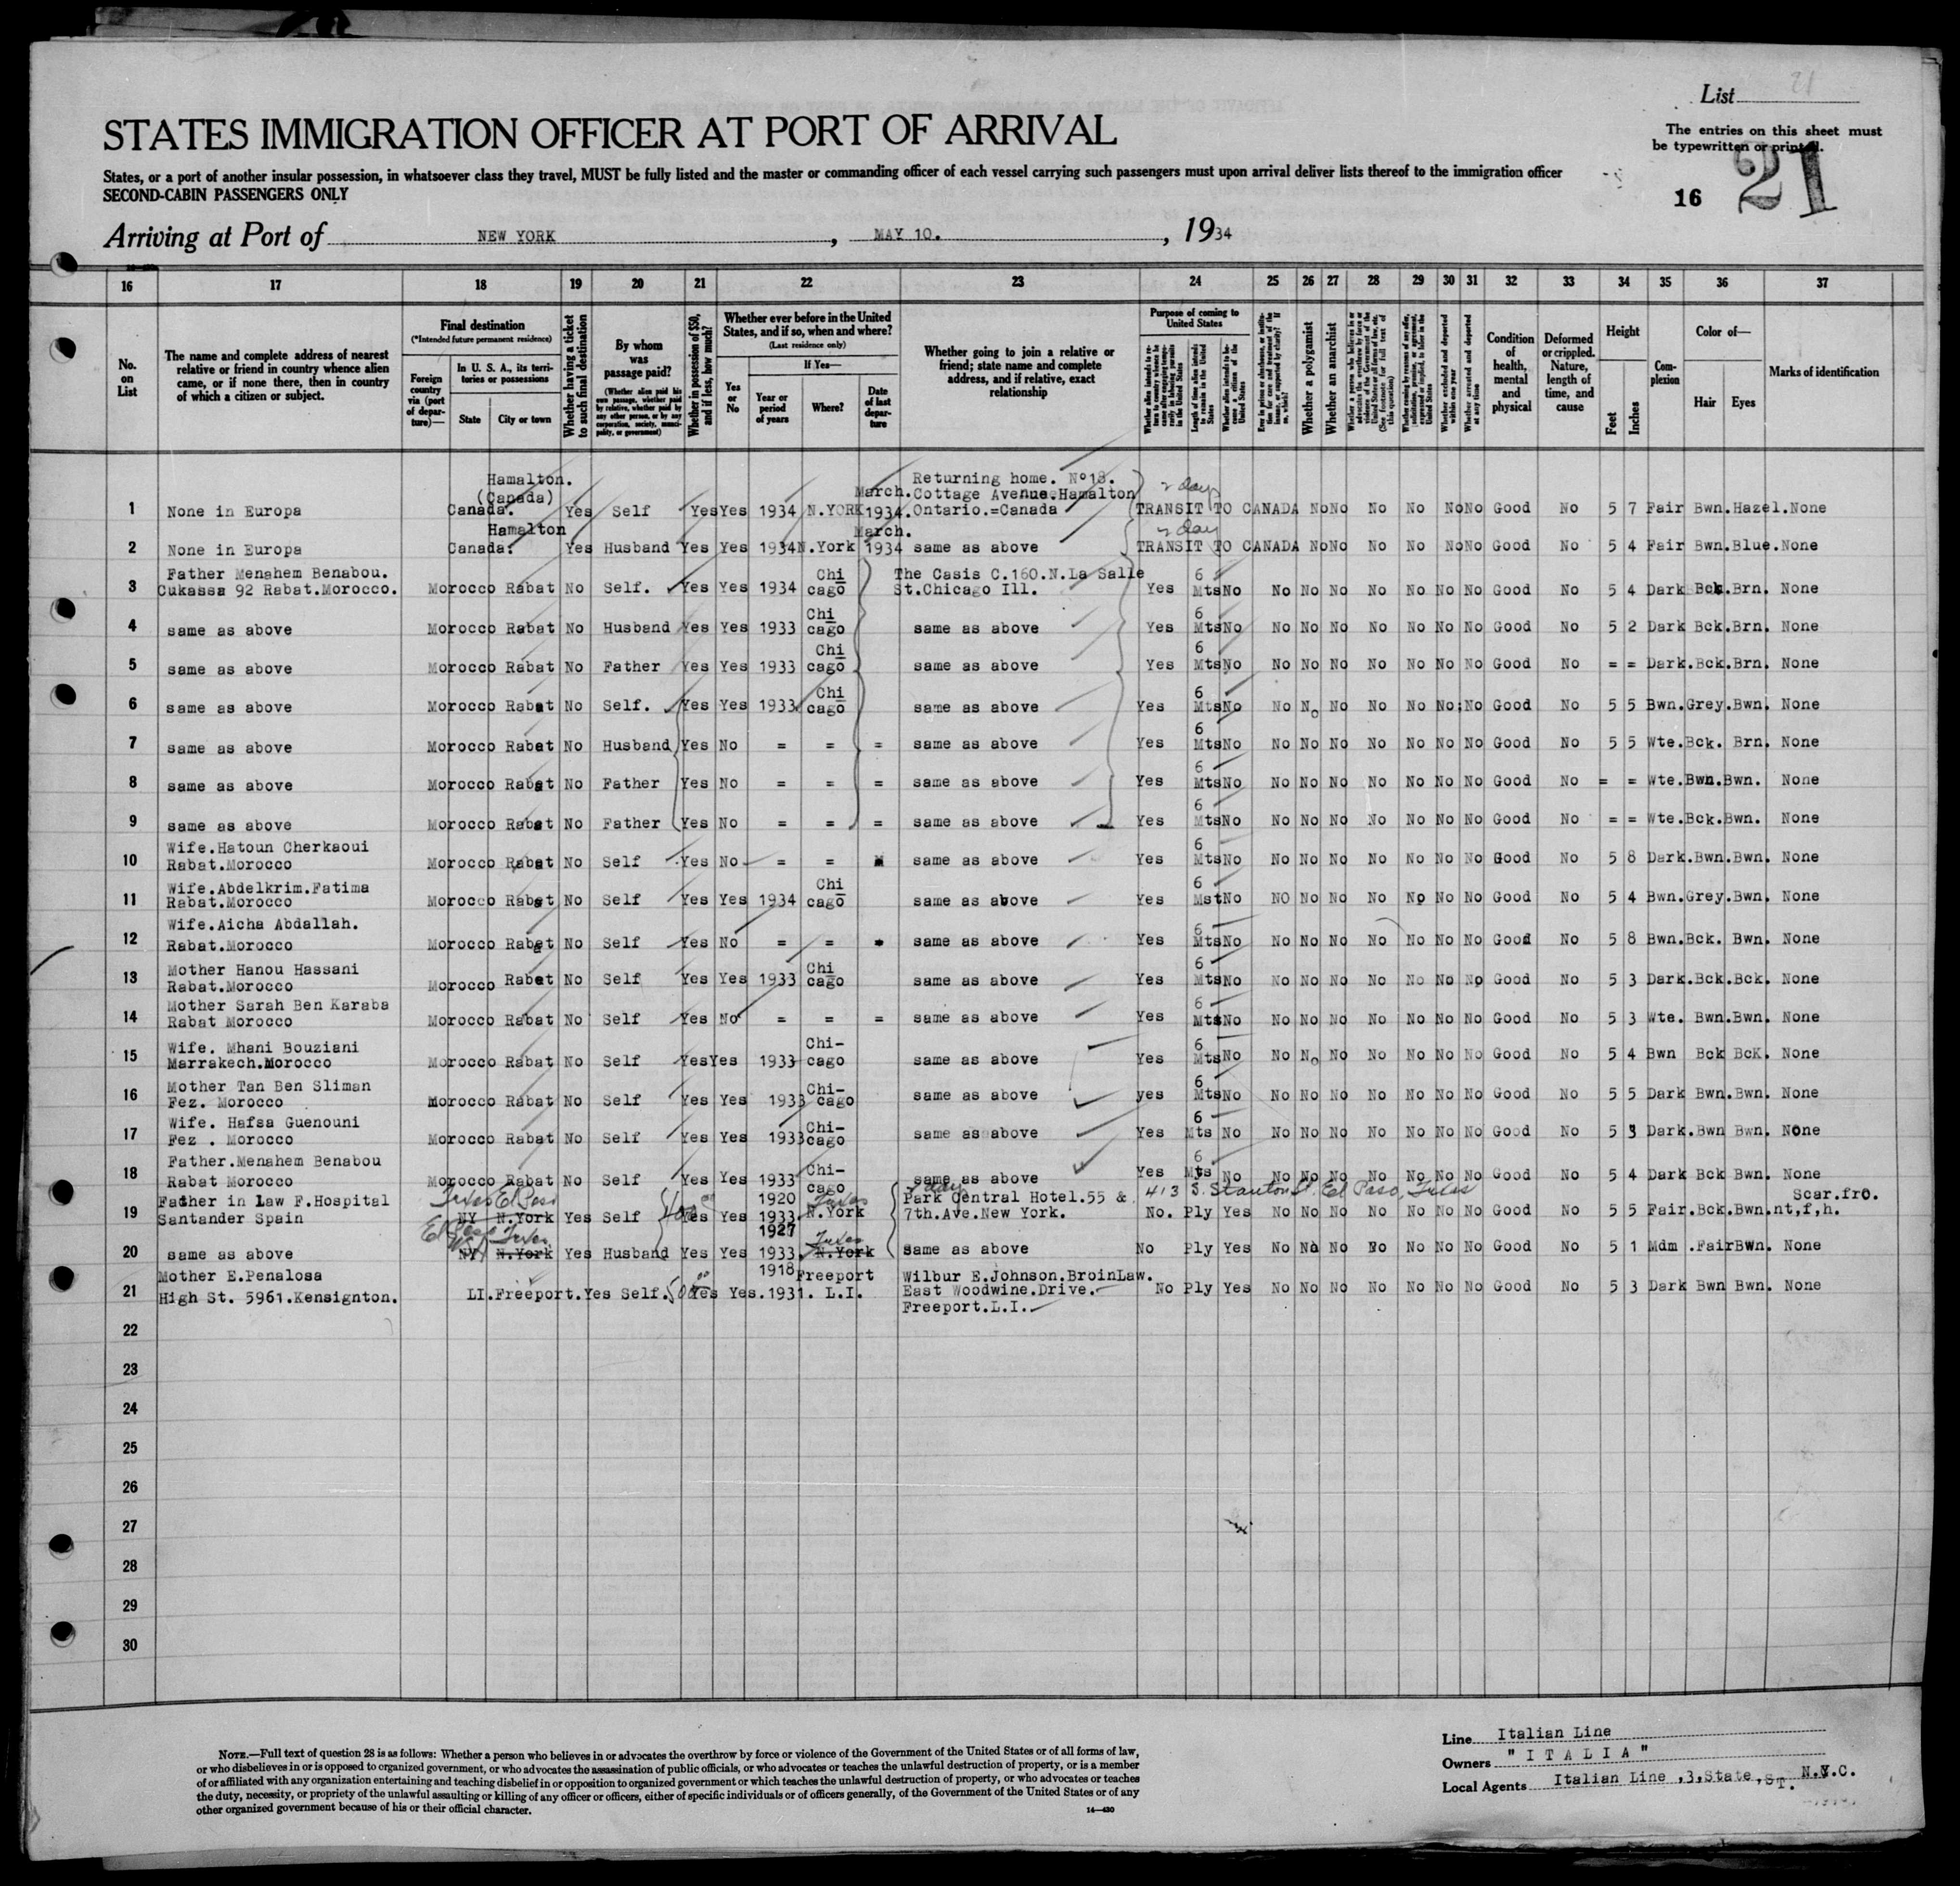 List 21
The entries on this sheet must
be typewritten or printed.
STATES IMMIGRATION OFFICER AT PORT OF ARRIVAL
States, or a port of another insular possession, in whatsoever class they travel, MUST be fully listed and the master or commanding officer of each vessel carrying such passengers must upon arrival deliver lists thereof to the immigration officer
SECOND-CABIN PASSENGERS ONLY
16 21
Arriving at Port of NEW YORK, MAY 10., 1934
16 17 18 19 20 21 22 23 24 25 26 27 28 29 30 31 32 33 34 35 36 37
No. on List
The name and complete address of nearest relative or friend in country whence alien came, or if none there, then in country of which a citizen or subject.
Final destination
(*Intended future permanent residence)
Foreign country via (port of departure)—
In U. S. A., its territories or possessions
State
City or town
Whether having a ticket to such final destination
By whom was passage paid?
(Whether alien paid his own passage, whether paid by relative, whether paid by any other person, or by any corporation, society, municipality, or government)
Whether in possession of $50, and if less, how much?
Whether ever before in the United States, and if so, when and where?
(Last residence only)
Yes or No
If Yes—
Year or period of years
Where?
Date of last departure
Whether going to join a relative or friend; state name and complete address, and if relative, exact relationship
Purpose of coming to United States
Whether a polygamist
Whether an anarchist
Condition of health, mental and physical
Deformed or crippled. Nature, length of time, and cause
Height
Feet
Inches
Complexion
Color of—
Hair
Eyes
Marks of identification
1 None in Europa Hamalton. (Canada) Canada. Yes Self Yes Yes 1934 N.YORK March. 1934. Returning home. Nº18. Cottage Avenue.Hamalton Ontario.=Canada 2 days TRANSIT TO CANADA No No No No No No Good No 5 7 Fair Bwn.Hazel.None
2 None in Europa Hamalton Canada. Yes Husband Yes Yes 1934 N.York March. 1934 same as above 2 day TRANSIT TO CANADA No No No No No No Good No 5 4 Fair Bwn.Blue.None
3 Father Menahem Benabou. Cukassa 92 Rabat.Morocco. Morocco Rabat No Self. Yes Yes 1934 Chicago The Casis C.160.N.La Salle St.Chicago Ill. Yes 6 Mts No No No No No No No No Good No 5 4 Dark Bck.Brn. None
4 same as above Morocco Rabat No Husband Yes Yes 1933 Chicago same as above Yes 6 Mts No No No No No No No No Good No 5 2 Dark Bck.Brn. None
5 same as above Morocco Rabat No Father Yes Yes 1933 Chicago same as above Yes 6 Mts No No No No No No No No Good No = = Dark.Bck.Brn. None
6 same as above Morocco Rabat No Self. Yes Yes 1933 Chicago same as above Yes 6 Mts No No No No No No No No Good No 5 5 Bwn.Grey.Bwn. None
7 same as above Morocco Rabat No Husband Yes No = = = same as above Yes 6 Mts No No No No No No No No Good No 5 5 Wte.Bck. Brn. None
8 same as above Morocco Rabat No Father Yes No = = = same as above Yes 6 Mts No No No No No No No No Good No = = Wte.Bwn.Bwn. None
9 same as above Morocco Rabat No Father Yes No = = = same as above Yes 6 Mts No No No No No No No No Good No = = Wte.Bck.Bwn. None
10 Wife.Hatoun Cherkaoui Rabat.Morocco Morocco Rabat No Self Yes No = = same as above Yes 6 Mts No No No No No No No No Good No 5 8 Dark.Bwn.Bwn. None
11 Wife.Abdelkrim.Fatima Rabat.Morocco Morocco Rabat No Self Yes Yes 1934 Chicago same as above Yes 6 Mst No NO No No No No No No Good No 5 4 Bwn.Grey.Bwn. None
12 Wife.Aicha Abdallah. Rabat.Morocco Morocco Rabat No Self Yes No = = same as above Yes 6 Mts No No No No No No No No Good No 5 8 Bwn.Bck. Bwn. None
13 Mother Hanou Hassani Rabat.Morocco Morocco Rabat No Self Yes Yes 1933 Chicago same as above Yes 6 Mts No No No No No No No No Good No 5 3 Dark.Bck.Bck. None
14 Mother Sarah Ben Karaba Rabat Morocco Morocco Rabat No Self Yes No = = = same as above Yes 6 Mts No No No No No No No No Good No 5 3 Wte. Bwn.Bwn. None
15 Wife. Mhani Bouziani Marrakech.Morocco Morocco Rabat No Self Yes Yes 1933 Chi-cago same as above Yes 6 Mts No No No No No No No No Good No 5 4 Bwn Bck BcK. None
16 Mother Tan Ben Sliman Fez. Morocco Morocco Rabat No Self Yes Yes 1933 Chi-cago same as above yes 6 Mts No No No No No No No No Good No 5 5 Dark Bwn.Bwn. None
17 Wife. Hafsa Guenouni Fez . Morocco Morocco Rabat No Self Yes Yes 1933 Chi-cago same as above Yes 6 Mts No No No No No No No No Good No 5 3 Dark.Bwn Bwn. None
18 Father.Menahem Benabou Rabat Morocco Morocco Rabat No Self Yes Yes 1933 Chi-cago same as above Yes 6 Mts No No No No No No No No Good No 5 4 Dark Bck Bwn. None
19 Father in Law F.Hospital Santander Spain Texas El Paso NY N.York Yes Self 400 Yes Yes 1920 1933. Texas N.York 2 days Park Central Hotel.55 & 7th.Ave.New York. 413 S. Stanton St. El Paso, Texas No. Ply Yes No No No No No No No Good No 5 5 Fair.Bck.Bwn. Scar.fro.nt,f,h.
20 same as above El Paso Texas NY N.York Yes Husband Yes Yes 1927 1933. Texas N.York same as above No Ply Yes No No No No No No No Good No 5 1 Mdm .Fair Bwn. None
21 Mother E.Penalosa High St. 5961.Kensignton. LI.Freeport.Yes Self. 500 Yes Yes. 1918 1931. Freeport L.I. Wilbur E.Johnson.BroinLaw. East Woodwine.Drive. Freeport.L.I. No Ply Yes No No No No No No No Good No 5 3 Dark Bwn Bwn. None
22
23
24
25
26
27
28
29
30
NOTE.—Full text of question 28 is as follows: Whether a person who believes in or advocates the overthrow by force or violence of the Government of the United States or of all forms of law,
or who disbelieves in or is opposed to organized government, or who advocates the assassination of public officials, or who advocates or teaches the unlawful destruction of property, or is a member
of or affiliated with any organization entertaining and teaching disbelief in or opposition to organized government or which teaches the unlawful destruction of property, or who advocates or teaches
the duty, necessity, or propriety of the unlawful assaulting or killing of any officer or officers, either of specific individuals or of officers generally, of the Government of the United States or of any
other organized government because of his or their official character.
14—430
Line Italian Line
Owners "ITALIA"
Local Agents Italian Line ,3,State,ST. N.Y.C.